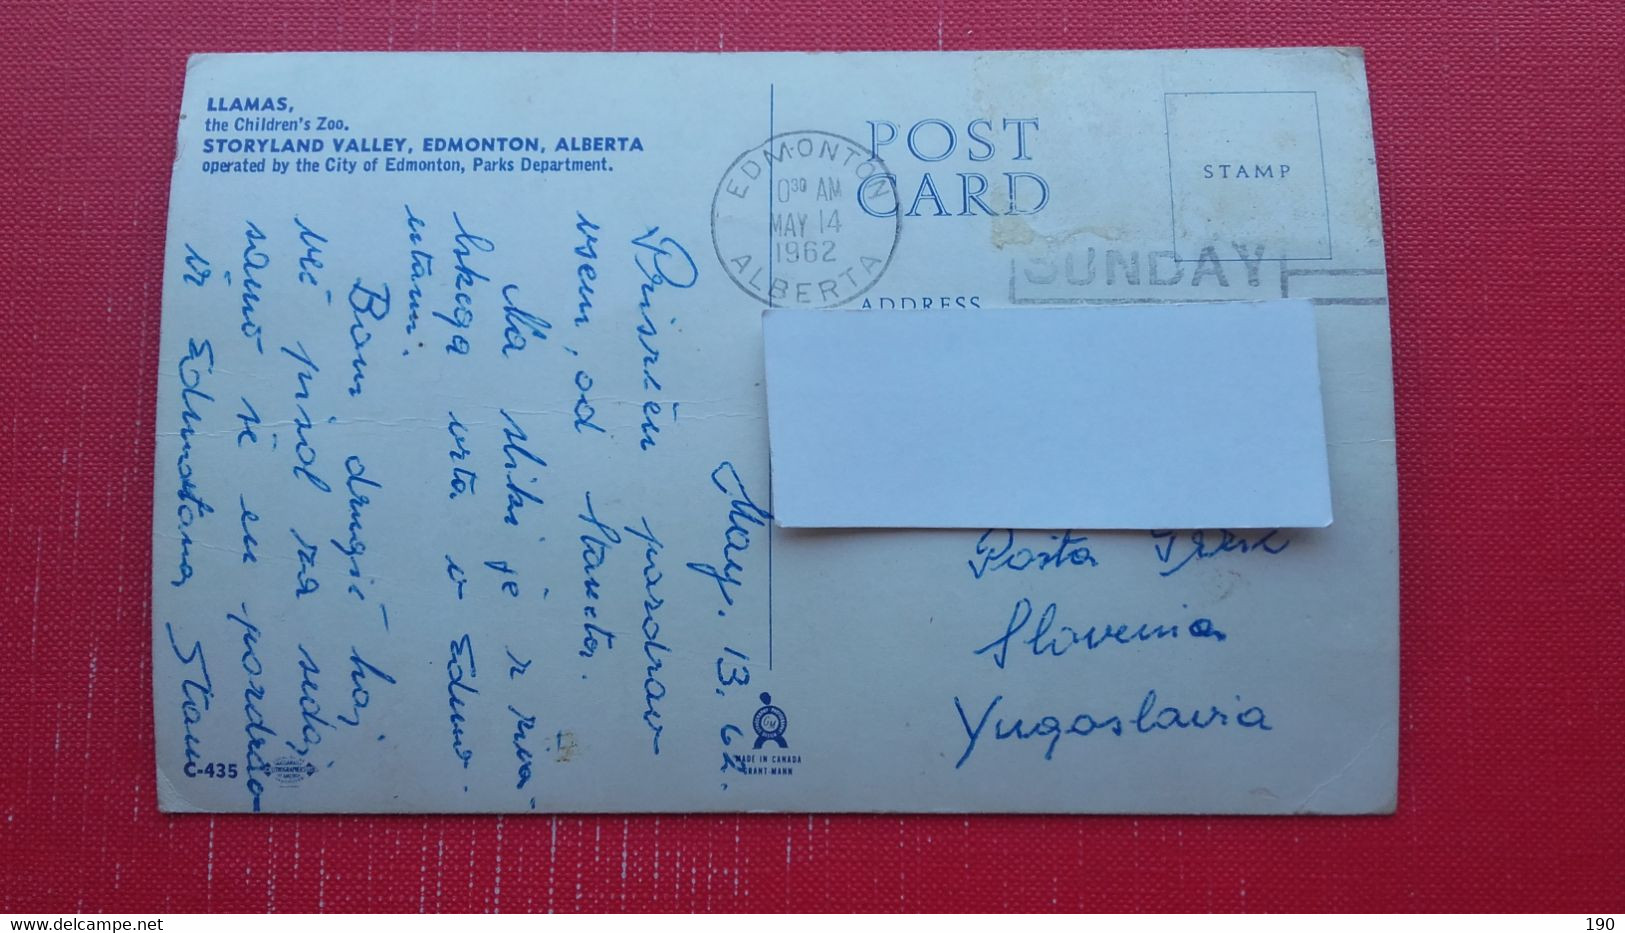 LLAMAS,
the Children's Zoo.
STORYLAND VALLEY, EDMONTON, ALBERTA
operated by the City of Edmonton, Parks Department.
May. 13. 62.
Prisrčen pozdrav
vsem, od Stankota.
Na sliki je z živa-
lskega vrta v Edmo-
ntonu.
Bom drugič kaj
več pisal za sedaj
samo še en pozdrav
iz Edmontona Stane
C-435
EDMONTON
0³⁰ AM
MAY 14
1962
ALBERTA
POST
CARD
STAMP
SUNDAY
ADDRESS
Pošta
Slovenia
Yugoslavia
MADE IN CANADA
GRANT-MANN
190